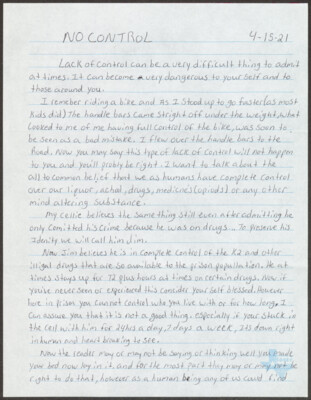 NO CONTROL 4-15-21
Lack of Control can be a very difficult thing to admit
at times. It can become very dangerous to your self and to
those around you.
I remeber riding a bike and As I stood up to go faster (as most
Kids did) The handle bars came stright off under the weight, what
looked to me of me having full control of the bike, was soon to
be seen as a bad mistake. I flew over the handle bars to the
Road. Now you may say this type of lack of Control will not happen
to you and you'll probly be right. I want to talk about the
all to common belief that we as humans have complete control
over our liquor, achol, drugs, medicines (opiods) or any other
mind altering Substance.
My cellie belives the same thing Still even after admitting he
only Comitted his Crime because he was on drugs... To preserve his
Idenity we will call him Jim.
Now Jim believes he is in Complete Control of the K2 and other
illigal drugs that are so available to the prison population. He at
times Stays up for 12 plus hours at times on certain drugs. Now if
you've never seen or experienced this Consider your Self blessed. However
here in prison you can not control who you live with or for how long. I
Can assure you that it is not a good thing. especially if your Stuck in
the cell with him for 24hrs a day, 7 days a week, Its down right
in human and heart breaking to See.
Now the reader may or may not be saying or thinking well you made
your bed now lay in it. and for the most part they may or may not be
right to do that, however as a human being any of us could find